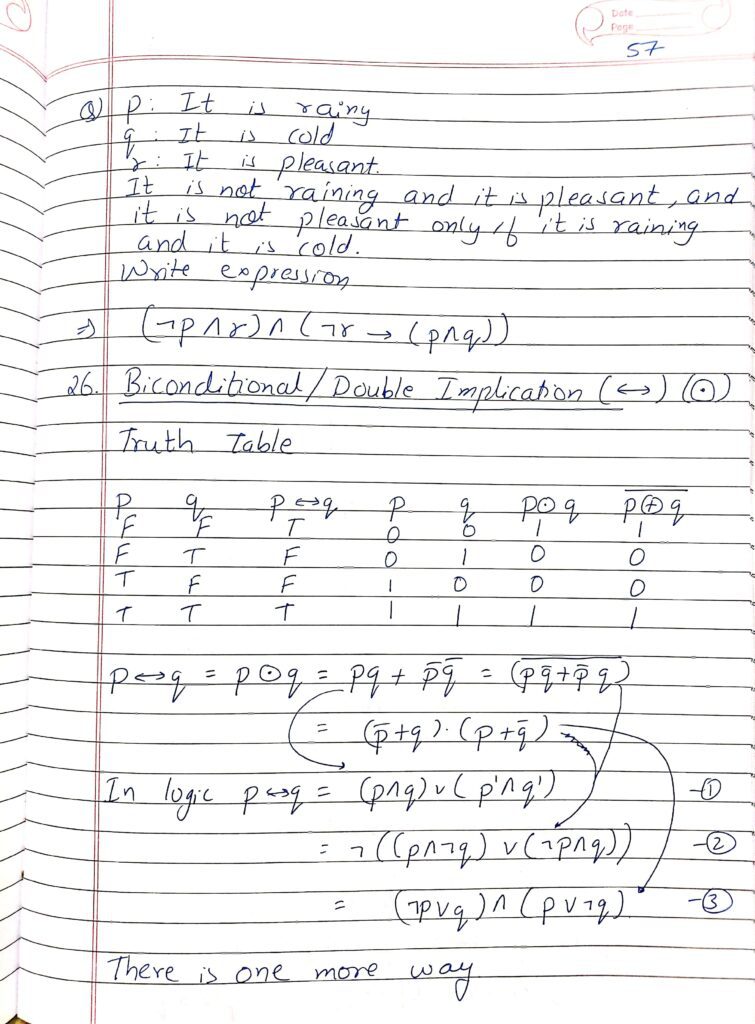 Date
Page
57
Q) p: It is rainy
q: It is cold
r: It is pleasant.
It is not raining and it is pleasant, and
it is not pleasant only if it is raining
and it is cold.
Write expression
⇒ (¬p∧r)∧(¬r → (p∧q))
26. Biconditional/Double Implication (↔) (⊙)
Truth Table
P q P↔q P q p⊙q p̅⊕̅q̅
F F T 0 0 1 1
F T F 0 1 0 0
T F F 1 0 0 0
T T T 1 1 1 1
p↔q = p⊙q = pq + p̄q̄ = (p̅q̄+p̄q)̅
= (p̄+q)·(p+q̄)
In logic p↔q = (p∧q)∨(p'∧q') -①
= ¬((p∧¬q)∨(¬p∧q)) -②
= (¬p∨q)∧(p∨¬q) -③
There is one more way